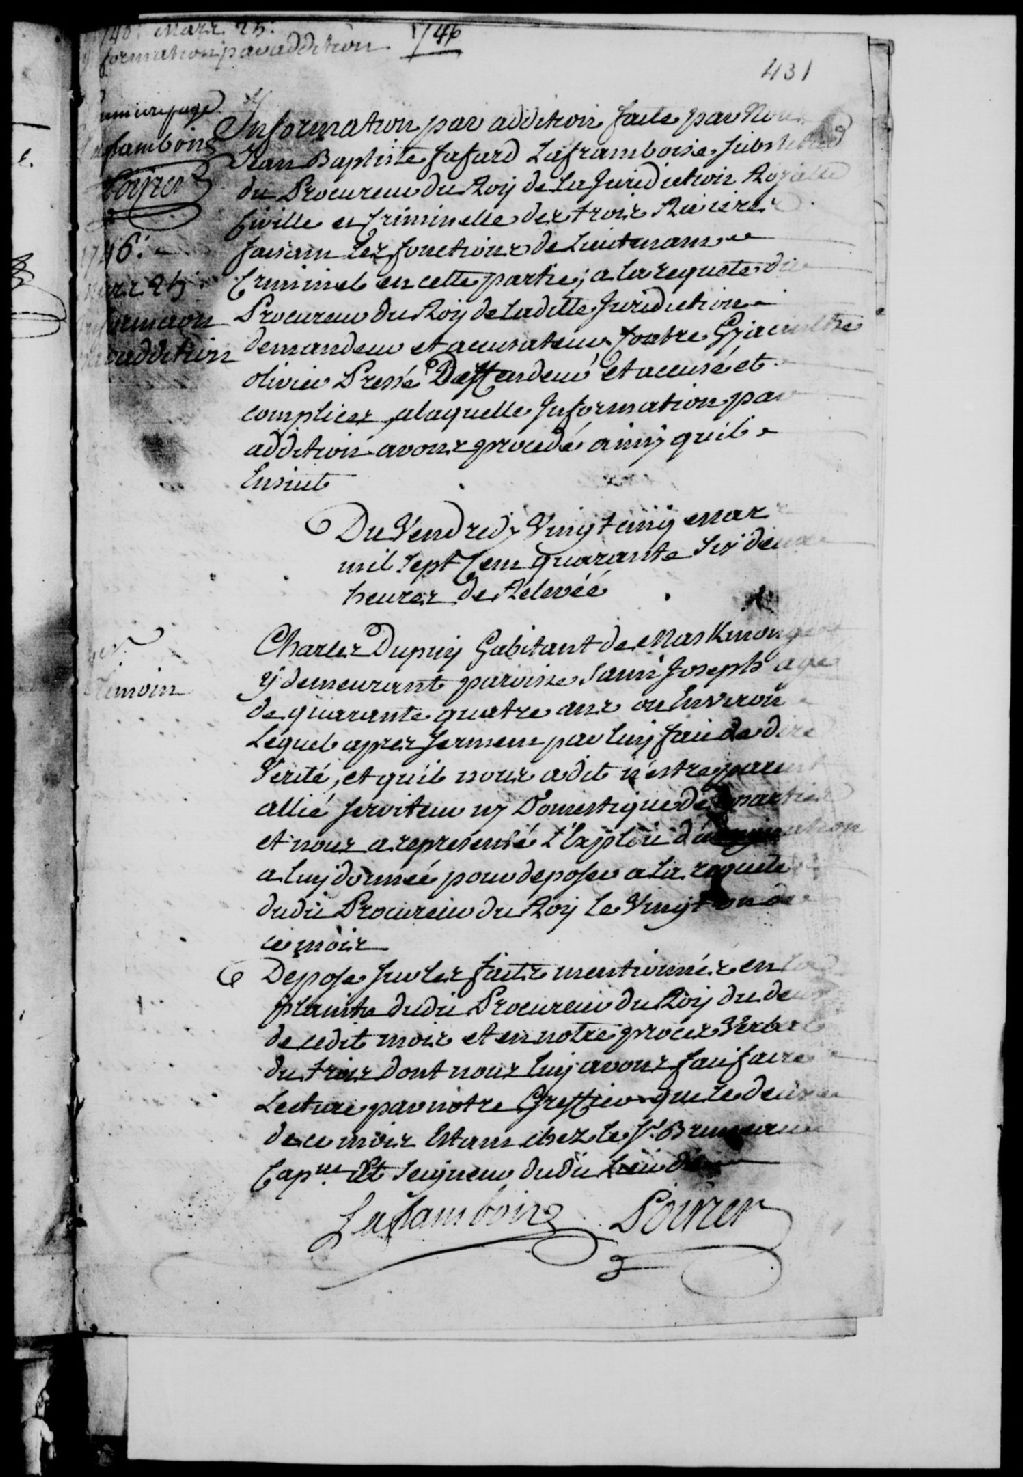 1746 Mars 25:
Information par addition
1746
431
premiere page
Laframboise
Poirier
1746:
Mars 25
Information
par addition
Information par addition faite par Nous
Jean Baptiste fafard Laframboise substitud
du Procureur du Roy de La Juridiction Royalle
Civille et Criminelle des trois Rivieres
faisant les fonctions de Lieutenant
Criminel en cette partie, a la requete du
Procureur Du Roy de Laditte Juridiction
demandeur et accusateur, Contre Gyacinthe
olivier Pressé Deffendeur et accusé et
complices, a laquelle Information par
addition avons procedé ainsy quil
Ensuit
Du Vendredy Vingt cinq Mars
mil sept Cent quarante six deux
heures de Relevée
Charles Dupuy habitant de Maskinongé
y demeurant paroisse saint Joseph agé
de quarante quatre ans ou Environ
Lequel apres serment par luy fait de dire
Verité, et quil nous a dit n'estre parent
allié serviteur ny Domestique des parties
et nous a representé l'Exploit d'assignation
a luy donnée pour deposer a la requete
dudit Procureur du Roy le Vingt
ce mois
temoin
Depose sur les faits mentionnés en
plainte dudit Procureur du Roy du deux
de cedit mois et en notre procez Verbal
du trois Dont nous luy avons fait faire
Lecture par notre Greffier que le deux
de ce mois Estant chez le Sr. Brunneau
Capne. Et seigneur dudit Lieu
Laframboise Poirier